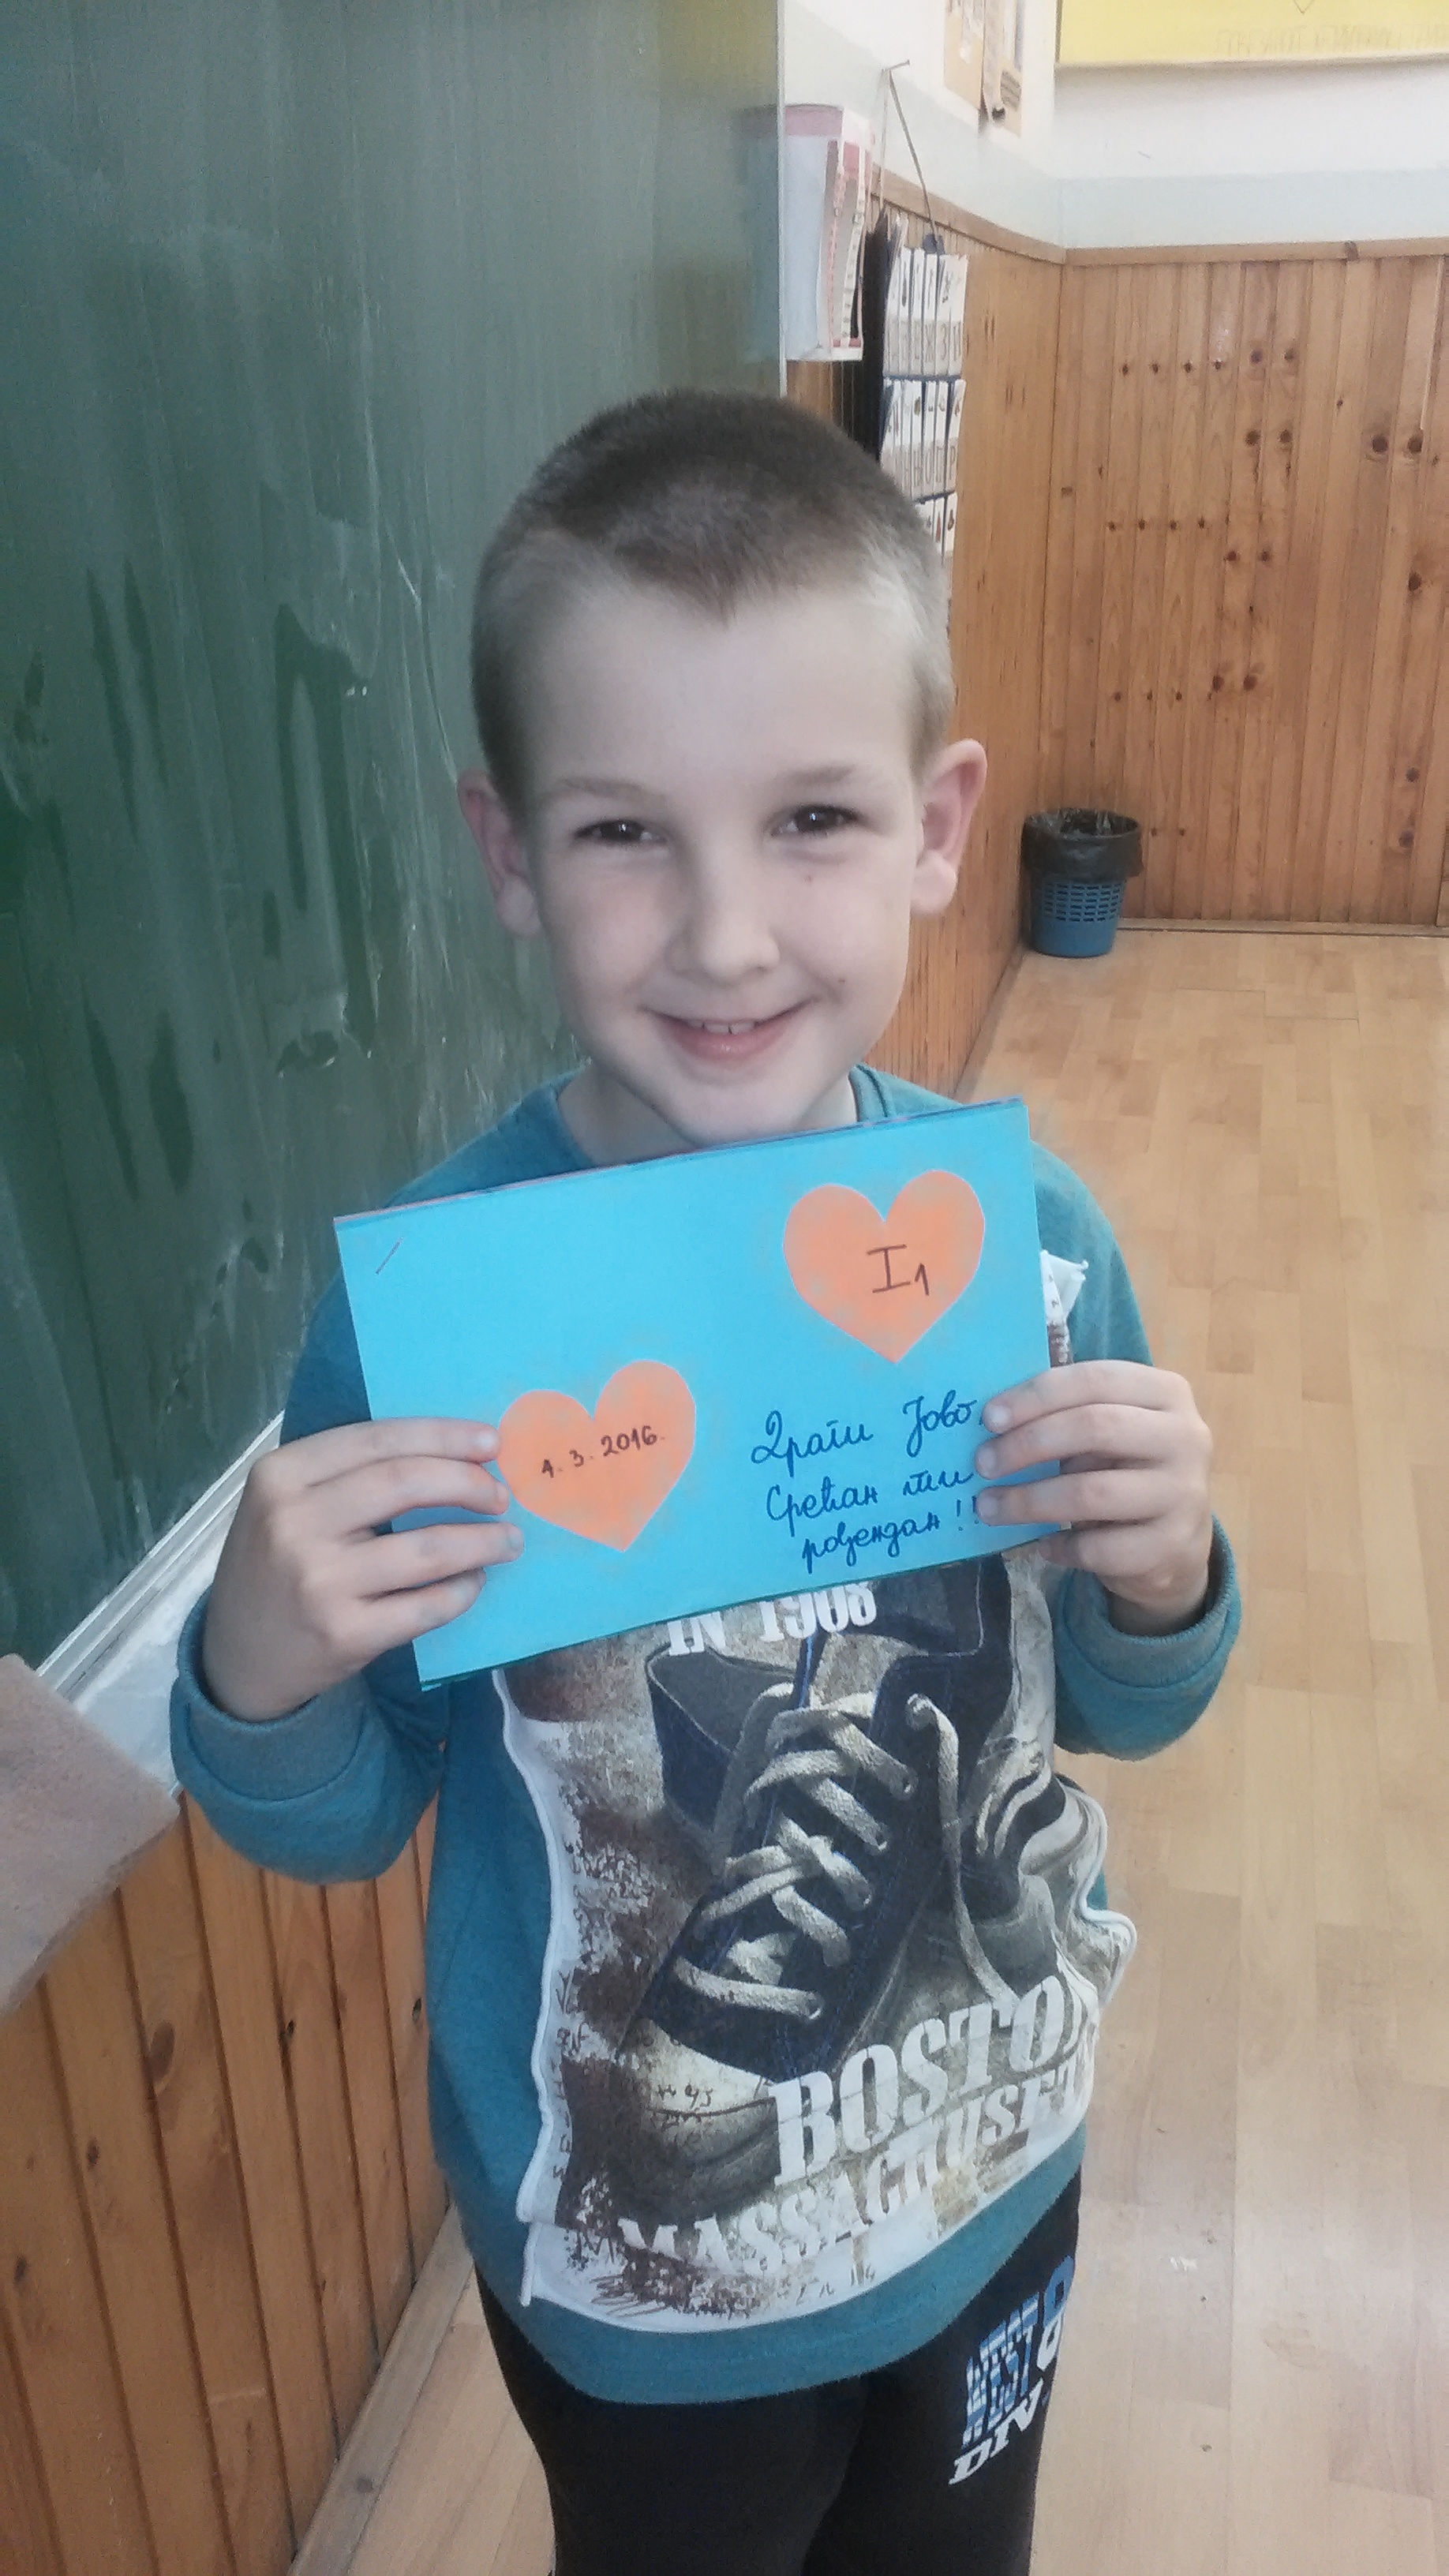 I1
1. 3. 2016.
Драги Јово,
Срећан ти
рођендан!!
IN 1908
BOSTON
MASSACHUSETTS
WEST
DIV.